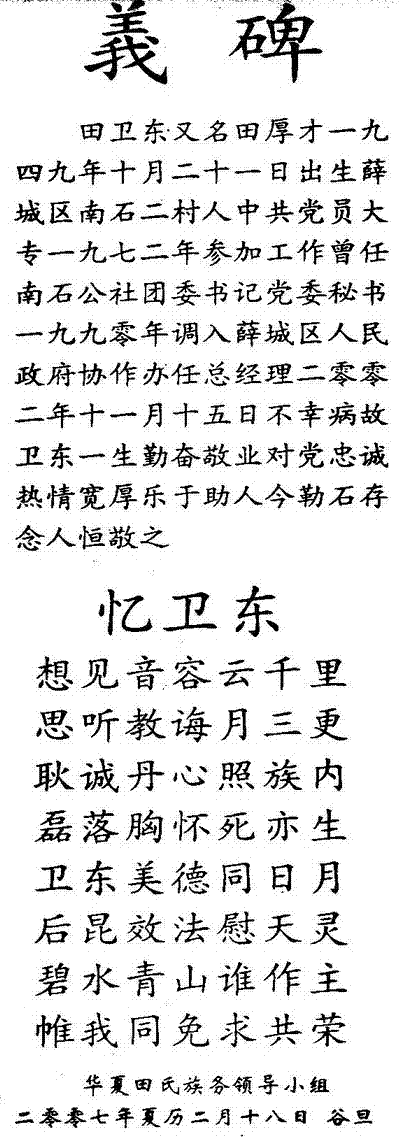 義碑
田卫东又名田厚才一九
四九年十月二十一日出生薛
城区南石二村人中共党员大
专一九七二年参加工作曾任
南石公社团委书记党委秘书
一九九零年调入薛城区人民
政府协作办任总经理二零零
二年十一月十五日不幸病故
卫东一生勤奋敬业对党忠诚
热情宽厚乐于助人今勒石存
念人恒敬之
忆卫东
想见音容云千里
思听教诲月三更
耿诚丹心照族内
磊落胸怀死亦生
卫东美德同日月
后昆效法慰天灵
碧水青山谁作主
帷我同免求共荣
华夏田氏族务领导小组
二零零七年夏历二月十八日 谷旦